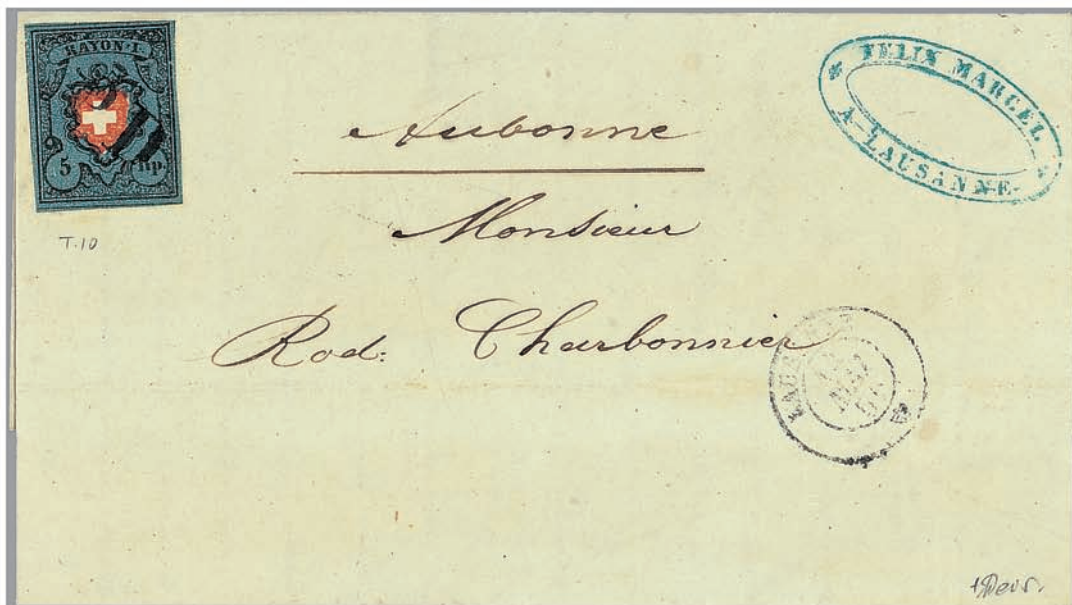 RAYON.I.
P.P.
5 Rp.
T.10
* FELIX MARCEL *
A-LAUSANNE-
Aubonne
Monsieur
Rod: Charbonnier
LAUSANNE